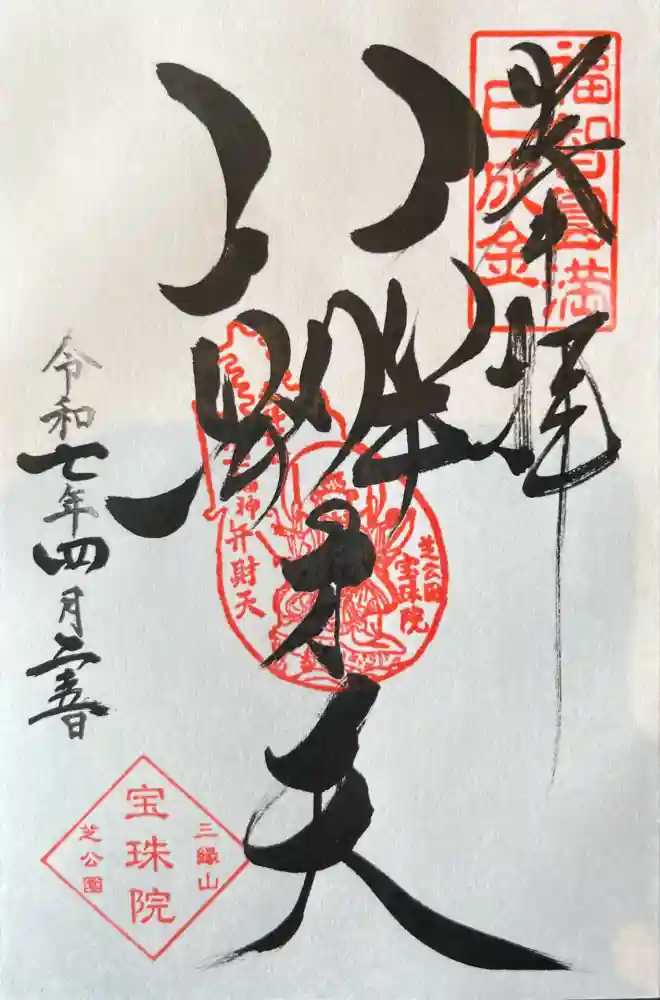 奉拝
福智圓満
巳成金
辨才天
芝公園
宝珠院
弁財天
令和七年四月二十五日
三縁山
宝珠院
芝公園